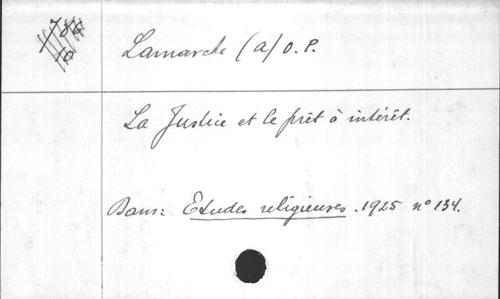 Lamarche (a) O.P.
La Justice et le prêt à intérêt.
Dans: Etudes religieuses. 1925 n° 134.